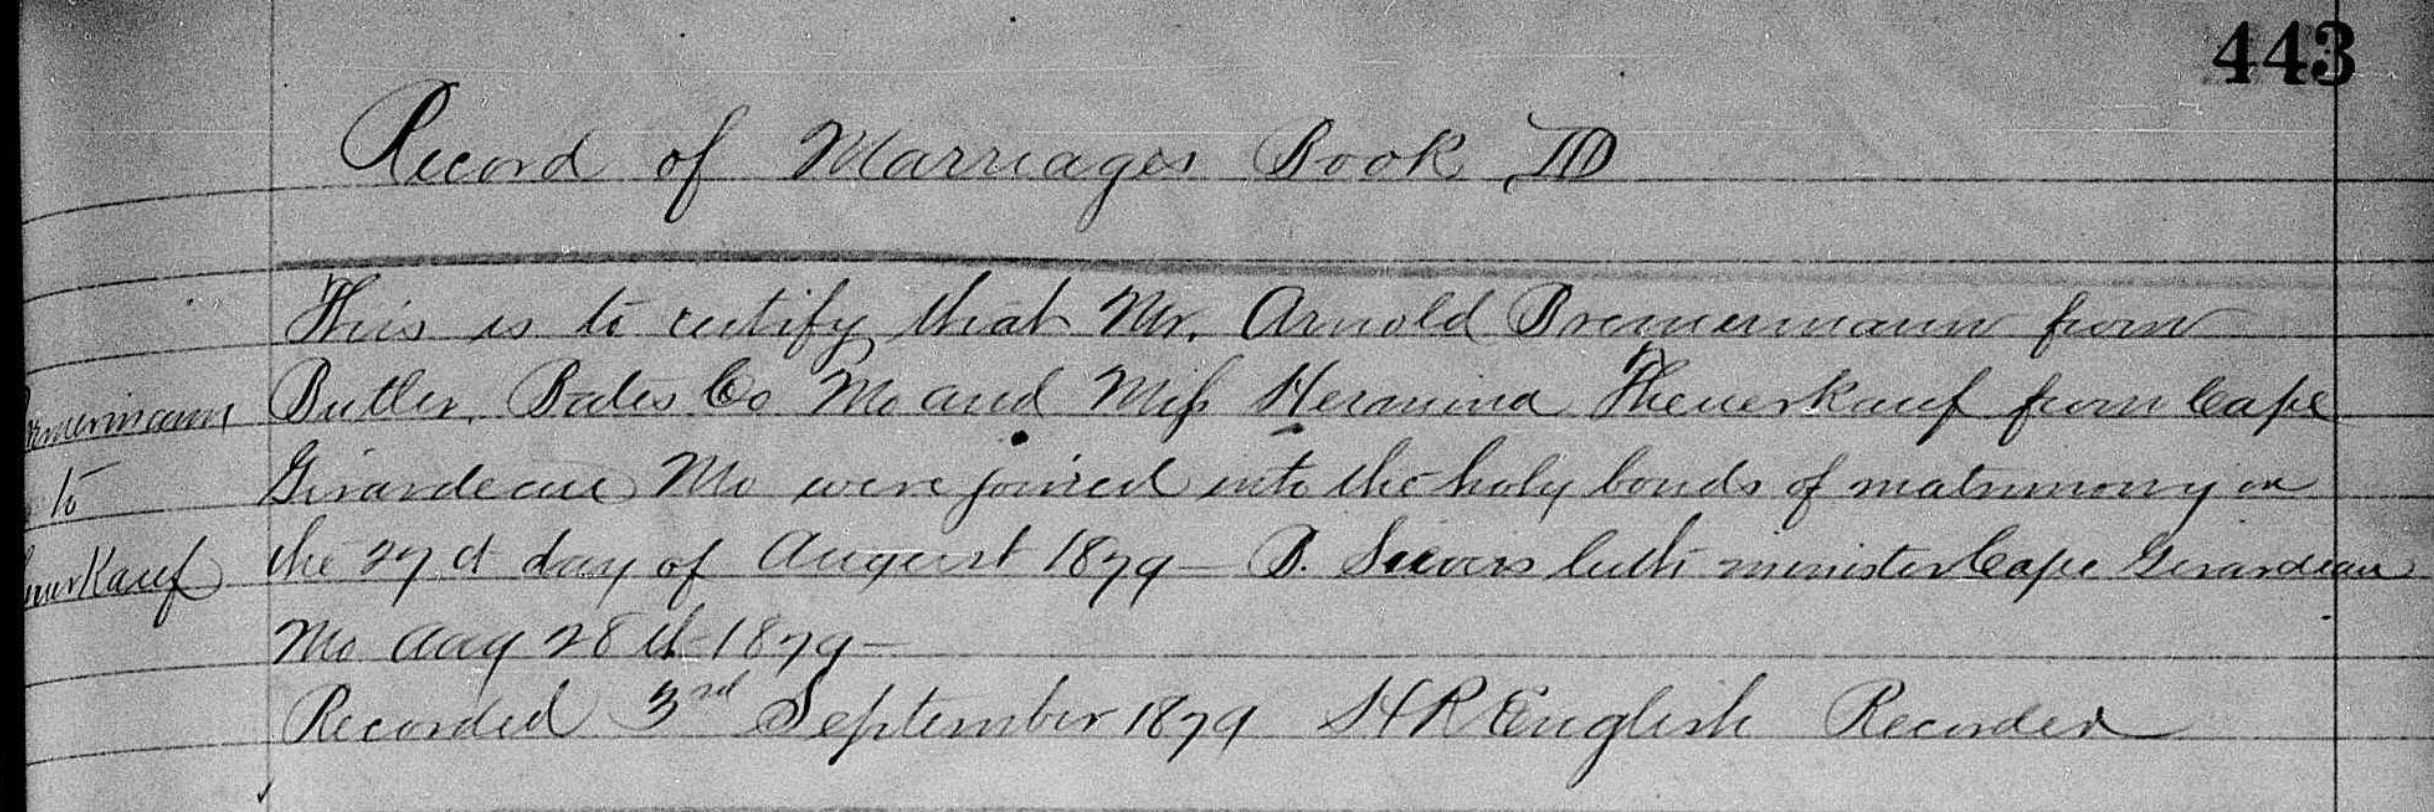 443
Record of Marriages Book D
This is to certify that Mr. Arnold Bremermann from
Butler, Bates Co Mo and Miss Heramina Theuerkauf from Cape
Girardeau Mo were joined into the holy bonds of matrimony on
the 27th day of August 1879 — B. Sievers luth minister Cape Girardeau
Mo Aug 28th 1879 —
Recorded 3rd September 1879 H R English Recorder
rmermann
to
uerkauf